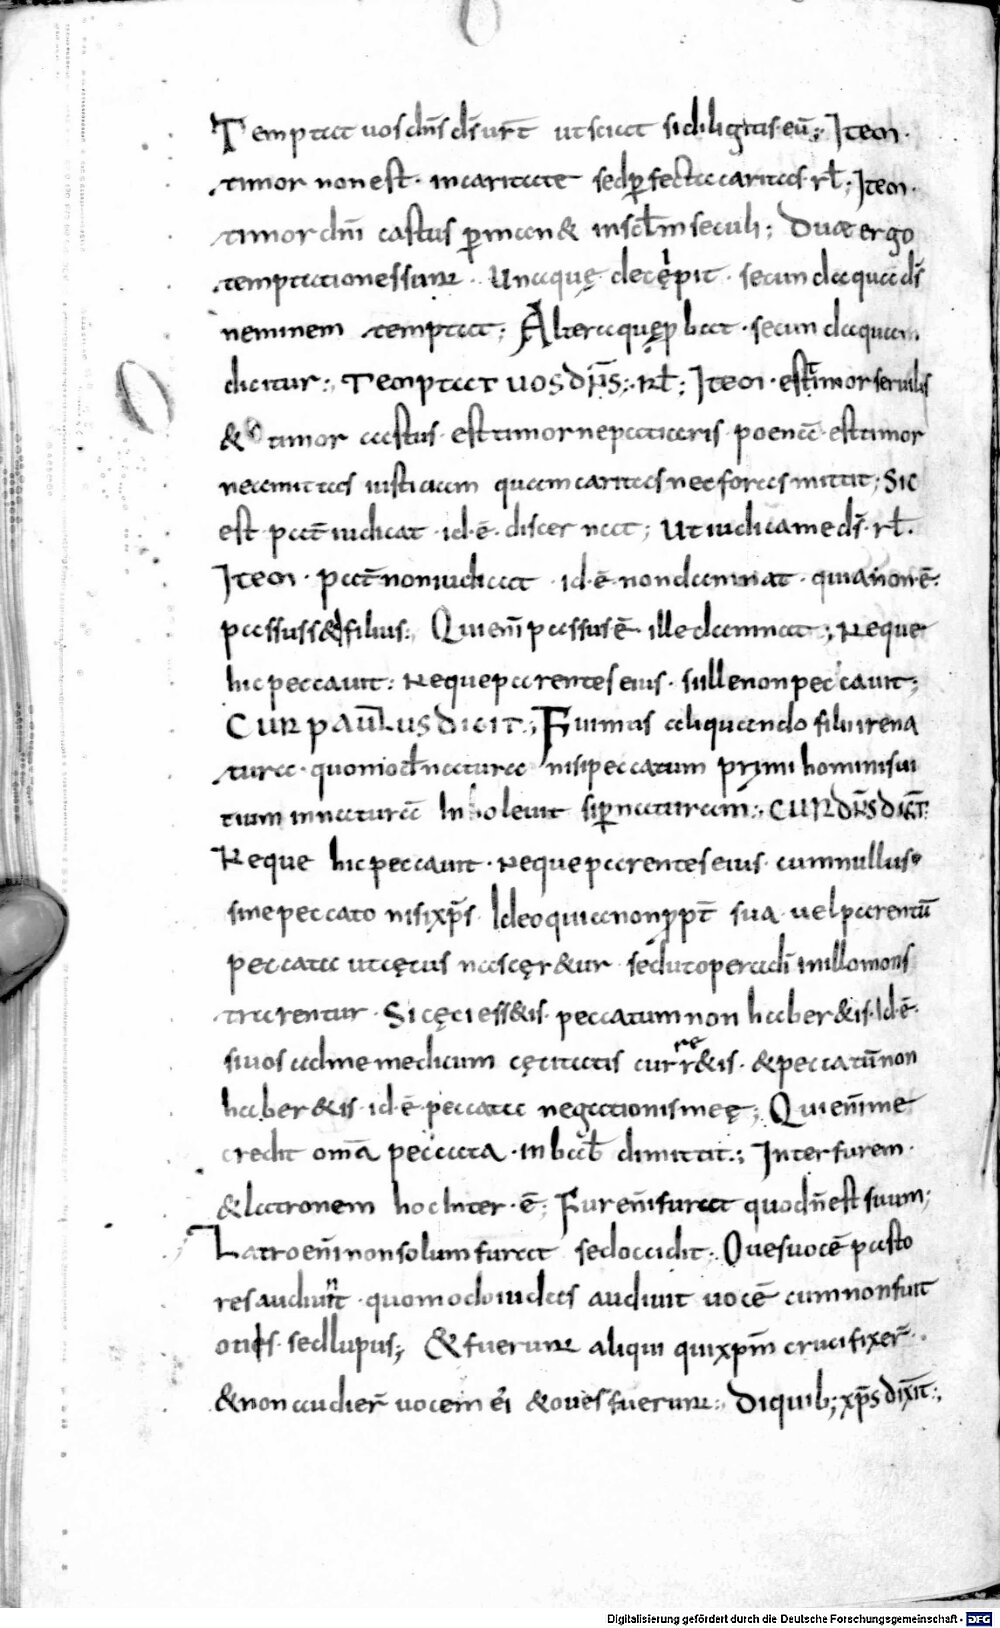 Temptat uos dn̄s ds̄ ur̄t ut sciat si diligitis eū; Item.
timor non est. in caritate sed ꝑfecta caritas. rł; Item.
timor dn̄i castus ꝑman& in scl̄m seculi; Duae ergo
temptationes sunt. Una quę decępit. secunda qua ds̄
neminem temptat; Altera quę ꝓbat. secunda quam
dicitur; Temptat uos dn̄s; rł; Item. est timor seruilis
& timor castus. est timor ne patiaris poenā. est timor
ne amittas iustitiam quam caritas nec foras mittit; Sic
est pat̄ iudicat. id. ē. discernat; Ut iudica me ds̄. rł.
Item. pat̄ non iudicat. id ē. non damnat. quia non ē.
passus s& filius; Qui eni̅ passus ē. ille damnat; Neque
hic peccauit: Neque parentes eius. si ille non peccauit;
Cur paulus dicit; Fuimus aliquando filii irena
tura. quomod̄ natura nisi peccatum primi hominis ui
tium in naturā Insoleuit. siꝑ naturam; Cur dn̄s dic̄t;
Neque hic peccauit. Neque parentes eius. cum nullus
sine peccato nisi xp̄s. Ideo quia non ꝓpt̄ sua uel parentū
peccata ut cęcus nascęr&ur sed ut opera di̅ in illo mons
trarentur. Si cęci ess&is. peccatum non haber&is. Id. ē.
si uos ad me medicum cęcitatis currer&is. & peccatū non
haber&is. id. ē. peccata negationis meę; Qui eni̅ me
credit om̄a peccata. in bab̄ dimittit; Inter furem.
& latronem hoc Inter. ē; Fur eni̅ furat quod n̄ est suum;
Latro eni̅ non solum furat sed occidit. Oues uocē pasto
res audiunt. quomodo iudas audiuit uocē cum non fuit
ouis. sed lupus; & fuerunt aliqui qui xpm̄ crucifixer̄.
& non audier̄ uocem ei & oues fuerunt; Di quib; xp̄s dix̄it;
Digitalisierung gefördert durch die Deutsche Forschungsgemeinschaft - DFG